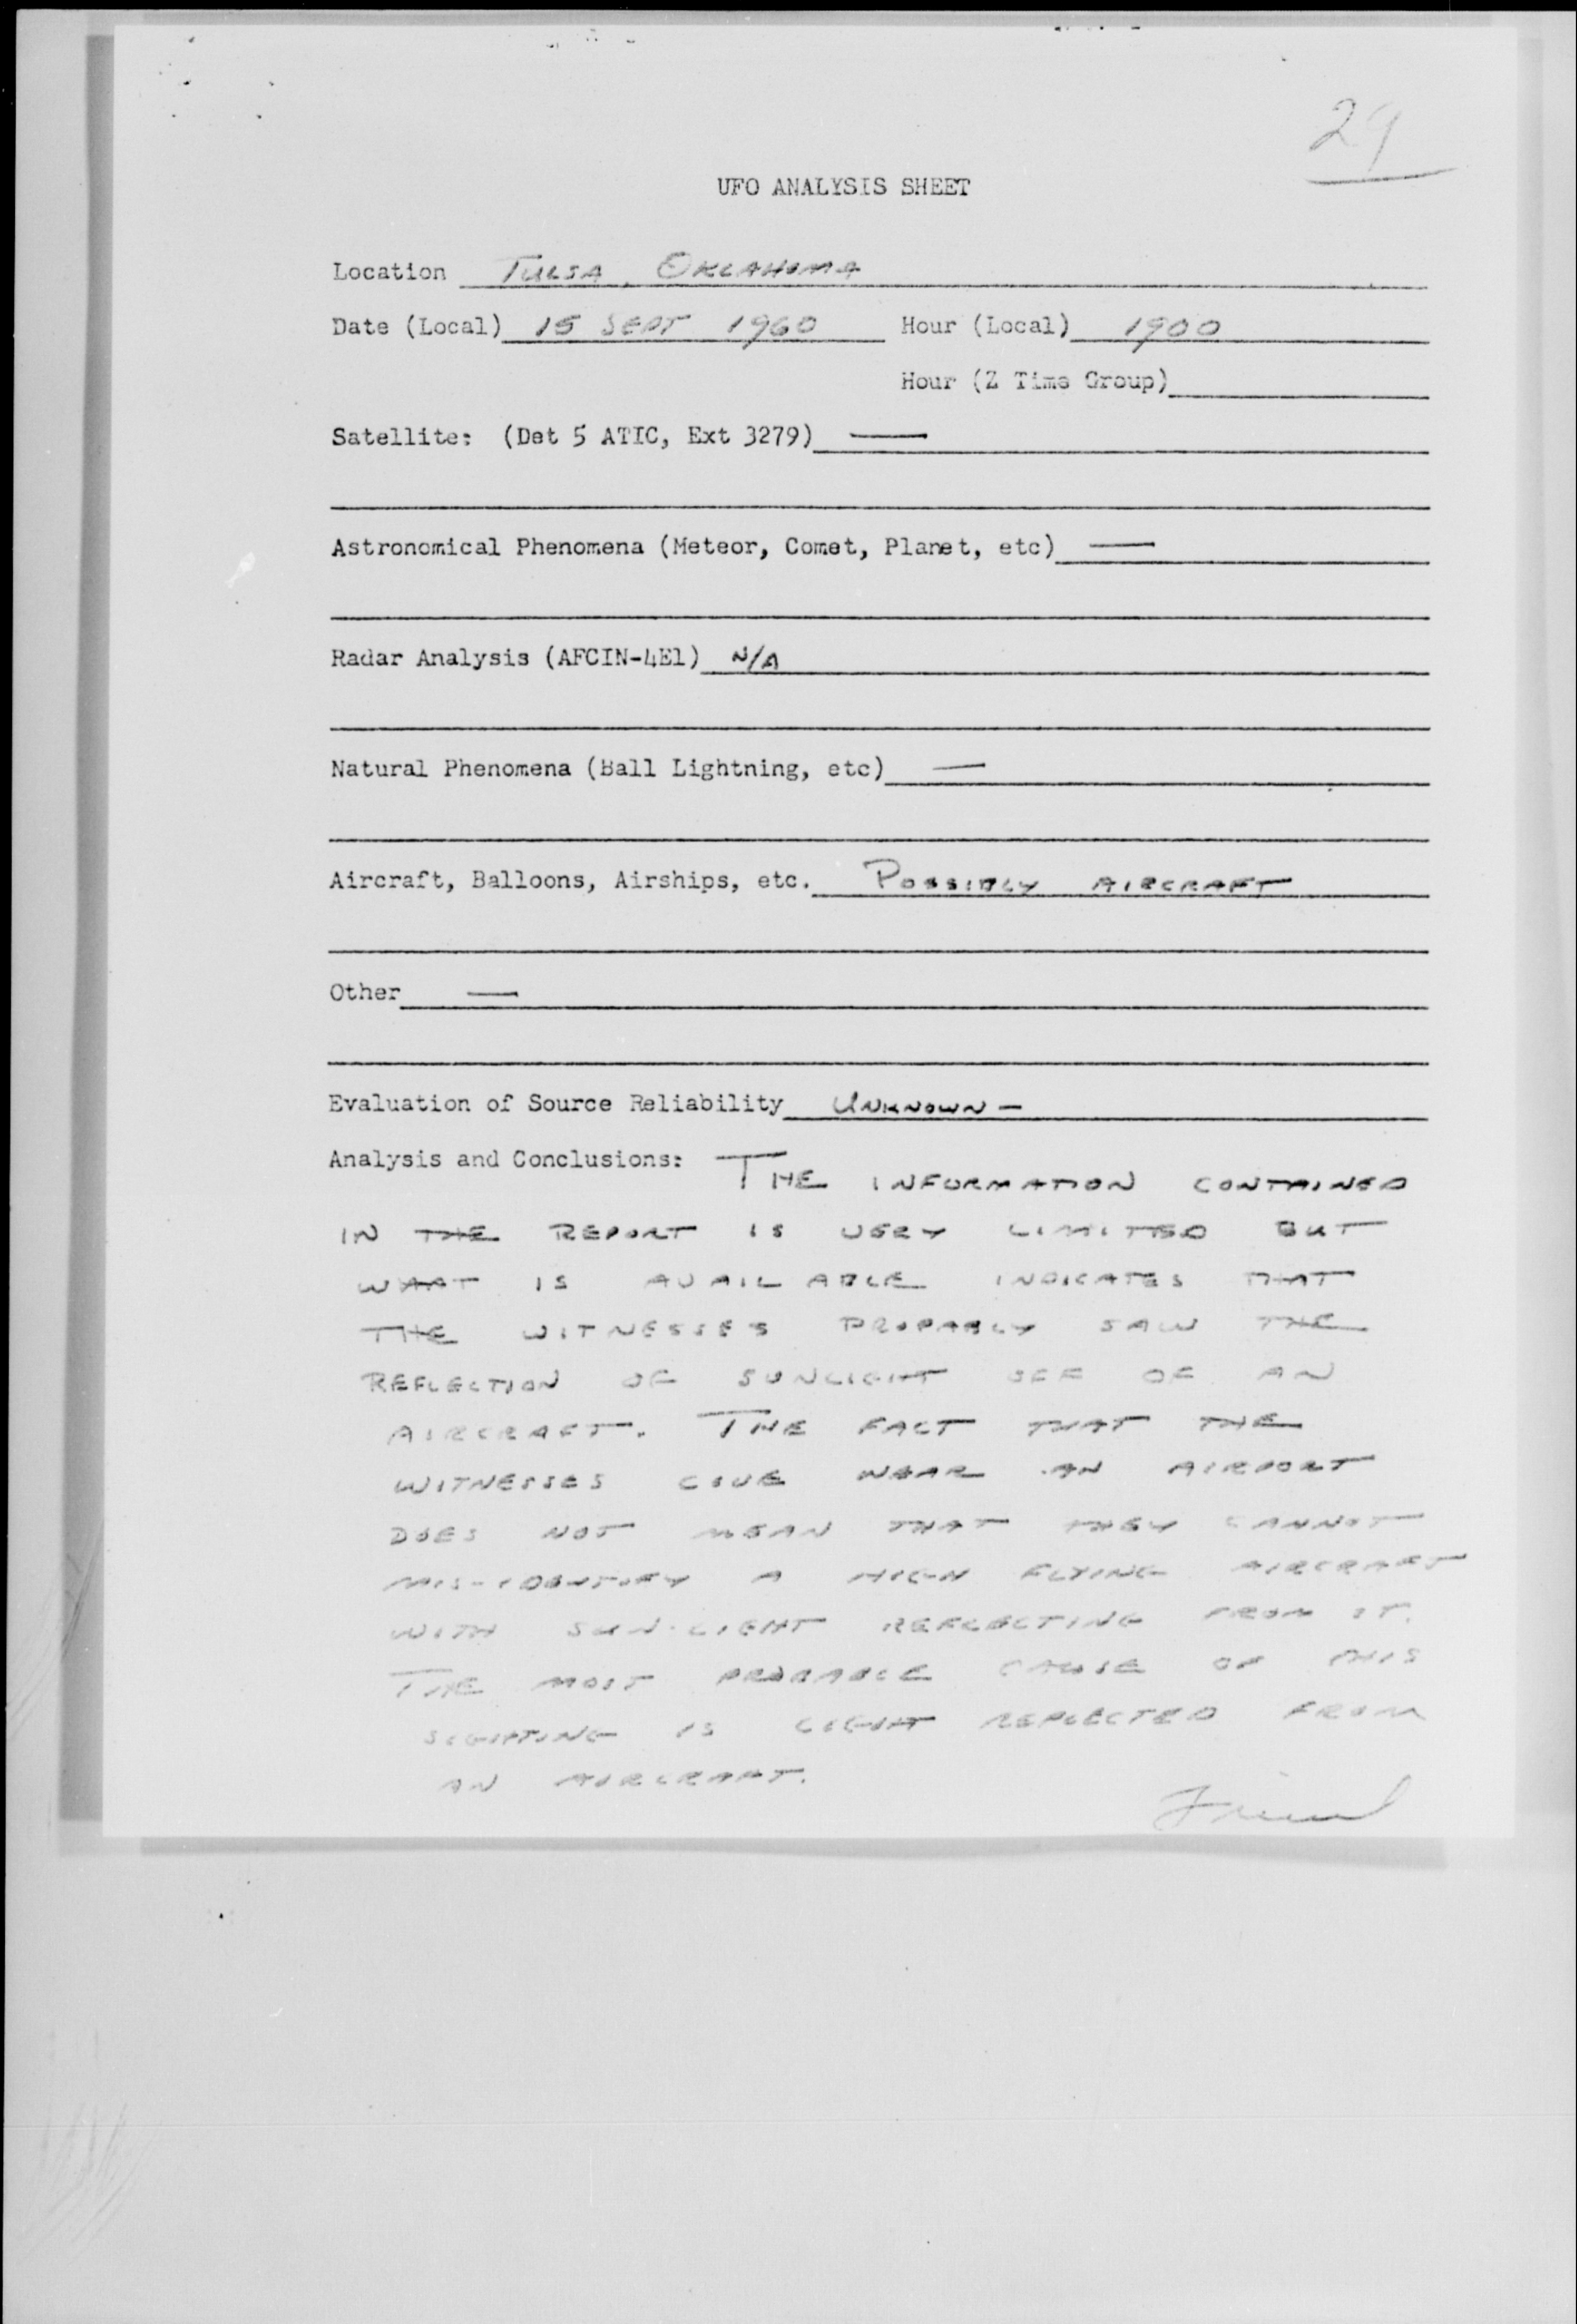 29
UFO ANALYSIS SHEET
Location TULSA, OKLAHOMA
Date (Local) 15 SEPT 1960 Hour (Local) 1900
Hour (Z Time Group)
Satellite: (Det 5 ATIC, Ext 3279) —
Astronomical Phenomena (Meteor, Comet, Planet, etc) —
Radar Analysis (AFCIN-4E1) N/A
Natural Phenomena (Ball Lightning, etc) —
Aircraft, Balloons, Airships, etc. POSSIBLY AIRCRAFT
Other —
Evaluation of Source Reliability UNKNOWN —
Analysis and Conclusions: THE INFORMATION CONTAINED
IN THE REPORT IS VERY LIMITED BUT
WHAT IS AVAILABLE INDICATES THAT
THE WITNESSES PROBABLY SAW THE
REFLECTION OF SUNLIGHT OFF OF AN
AIRCRAFT. THE FACT THAT THE
WITNESSES LIVE NEAR AN AIRPORT
DOES NOT MEAN THAT THEY CANNOT
MIS-IDENTIFY A HIGH FLYING AIRCRAFT
WITH SUN-LIGHT REFLECTING FROM IT.
THE MOST PROBABLE CAUSE OF THIS
SIGHTING IS LIGHT REFLECTED FROM
AN AIRCRAFT.
Friend